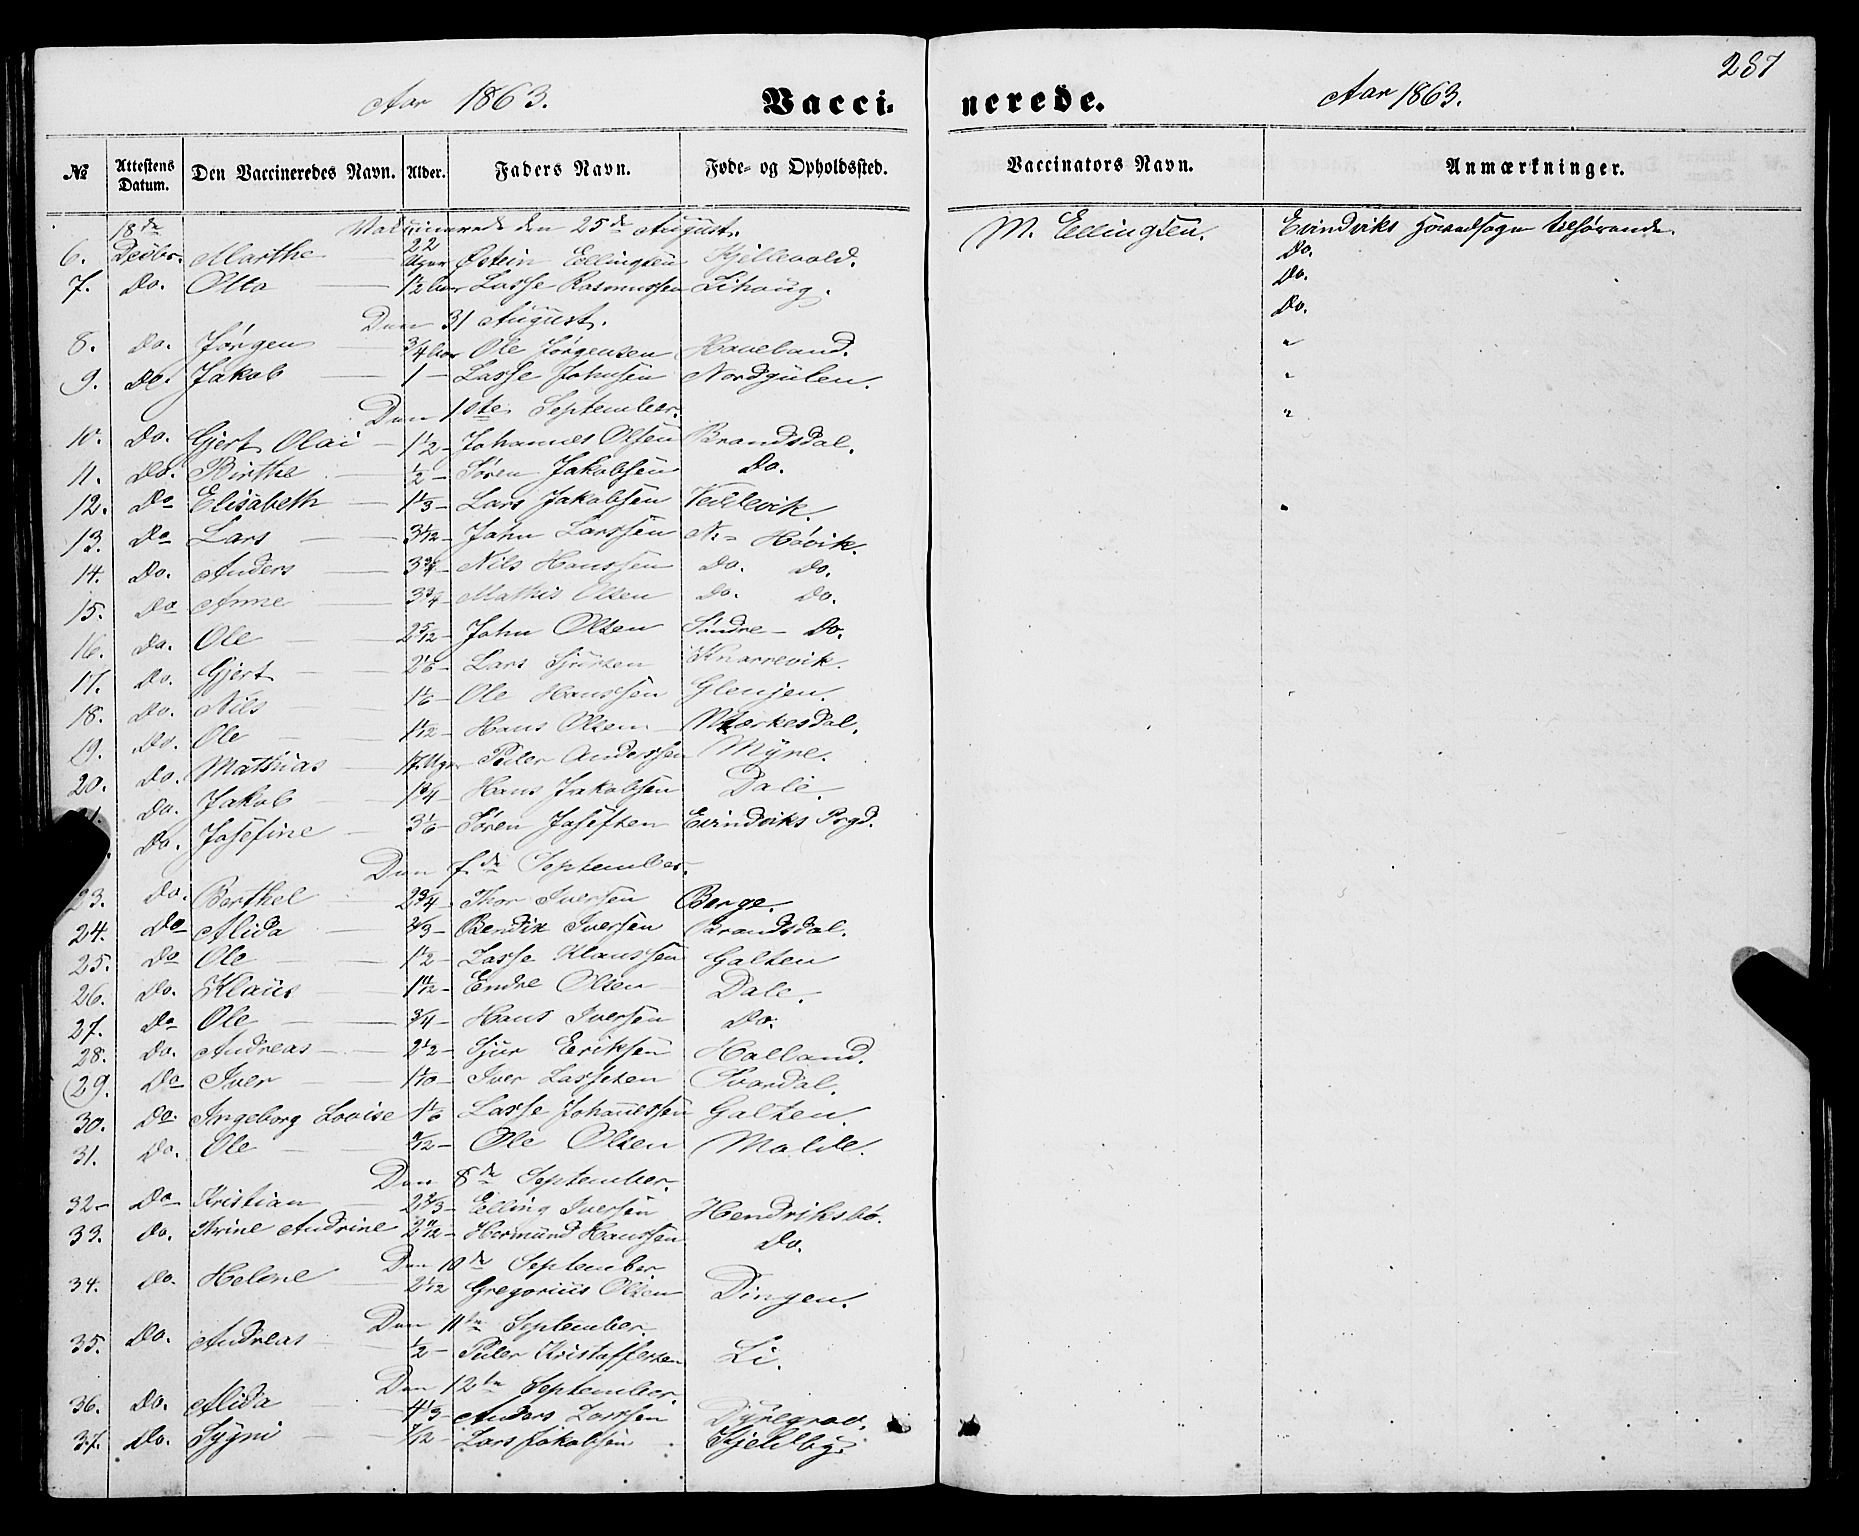 287
Aar 1863. Vaccinerede. Aar 1863.
№ Attestens Datum. Den Vaccineredes Navn. Alder. Faders Navn. Føde- og Opholdssted. Vaccinators Navn. Anmærkninger.
18de Vaccinerede den 25de August. M. Ellingsen. Evindviks Hovedsogn tilhørende.
6. Decbr. Marthe 22 Uger Østein Ellingsen Kjellevold. Do.
7. Do. Otto — 1½ Aar Lasse Rasmussen Lihoug. Do.
Den 31 August. Do.
8. Do. Jørgen — ¾ Aar Ole Jørgensen Haveland. "
9. Do. Jakob — 1 — Lasse Johnsen Nordgulen. "
Den 1ste September. "
10. Do. Gjert Olai — 1½ — Johannes Olsen Brandsdal.
11. Do. Birthe — ½ — Søren Jakobsen Do.
12. Do Elisabeth — 1⅓ — Lars Jakobsen
13. Do Lars — 3 1/12 — John Larssen N. = Høvik.
14. Do. Anders — 3¾ — Nils Hanssen Do. Do.
15. Do Anne — 3¾ — Mathis Olsen Do. Do.
16. Do. Ole — 2 5/12 — John Olsen Søndre — Do.
17. Do. Gjert — 2⅙ — Lars Sjursen Knarrevik.
18. Do. Nils — 1⅙ — Ole Hanssen Glenjen.
19. Do. Ole — 1 1/12 — Hans Olsen — Mærkesdal.
20. Do. Mathias — 17 Uger Peder Anderssen Myne.
1. Do. Jakob — 1¾ — Hans Jakobsen Dale.
Do. Josefine — 3⅙ — Søren Josefsen Evindviks Prgd.
Den 7de September.
23. Do. Berthel — 2¾ — Thor Iversen Berge.
24. Do Alida — ⅔ — Bendik Iversen Brandsdal.
25. Do Ole — 1½ — Lasse Klaussen Galten
26. Do. Klaus — Endre Olsen Dale.
27. Do Ole — ¾ — Hans Iversen Do.
28. Do. Andreas — 2½ — Sjur Eriksen Halland.
29. Do Iver — 1 1/10 — Iver Lassesen Svardal.
30. Do. Ingeborg Lovise 1⅙ Lasse Johannessen Galten.
31. Do. Ole — Ole Olsen Molde.
Den 8de September.
32 — Do Kristian — 2⅔ — Elling Iversen Hendriksbø.
33. Do. Trine Andrine Hermund Hanssen Do.
Den 10de September
34. Do. Helene — 2 1/12 Gregorius Olsen Dingen.
Den 11te September.
35. Do. Andreas — ½ — Peder Kristoffersen Li.
Den 12te September.
36. Do. Alida — 4⅓ — Anders Larssen Dyregrov.
37. Do. Sygni — 7/12 — Lars Jakobsen Kjeldby.